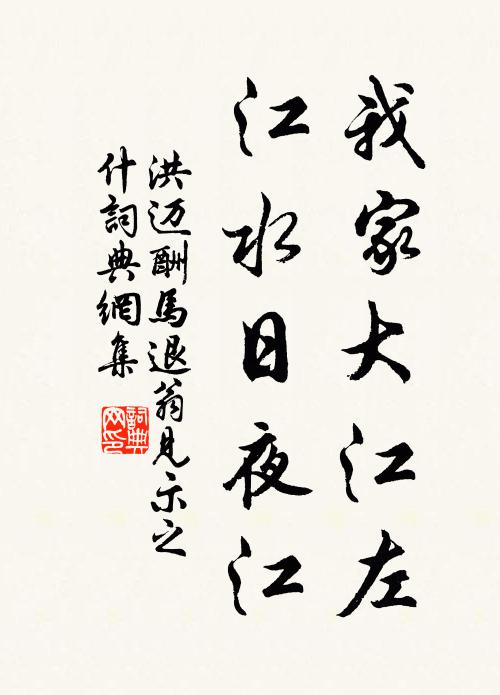 我家大江左
江水日夜江
洪迈酬馬退翁見示之
什詞典網集
詞典
网印